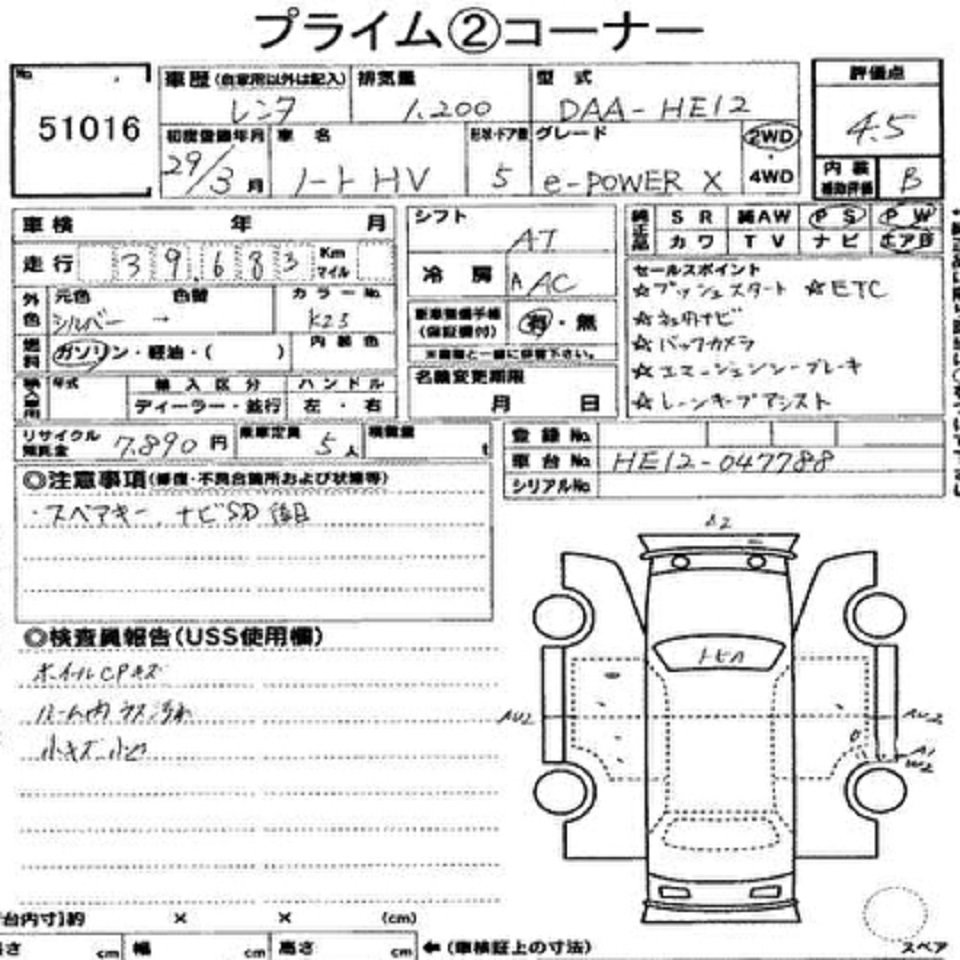 プライム②コーナー
No.
51016
車歴(自家用以外は記入) 排気量 型式
レンタ 1,200 DAA-HE12
初度登録年月 車名 形状・ドア数 グレード 2WD・4WD
29/3月 ノートHV 5 e-POWER X
評価点
4.5
内装補助評価 B
車検 年 月
走行 39,683 Km マイル
外色 元色 色替 カラーNo.
シルバー → K23
内装色
燃料 ガソリン・軽油・( )
輸入車 年式 輸入区分 ハンドル
ディーラー・並行 左・右
シフト AT
冷房 AAC
新車整備手帳(保証書付) 有・無
※書類と一緒に保管下さい。
名義変更期限
月 日
純正品 SR 純AW PS PW
カワ TV ナビ エアB
セールスポイント
☆プッシュスタート ☆ETC
☆社外ナビ
☆バックカメラ
☆エマージェンシーブレーキ
☆レーンキープアシスト
リサイクル預託金 7,890円 乗車定員 5人 積載量 t
登録No.
車台No. HE12-047788
シリアルNo.
◎注意事項(修復・不具合箇所および状態等)
・スペアキー、ナビSD後日
◎検査員報告(USS使用欄)
ホイールCPキズ
ルーム内ラス汚れ
小キズ 小凹
A2
トビA
AU2
AU2
A1
W2
台内寸)約 × × (cm)
長さ cm 幅 cm 高さ cm ←(車検証上の寸法)
スペア